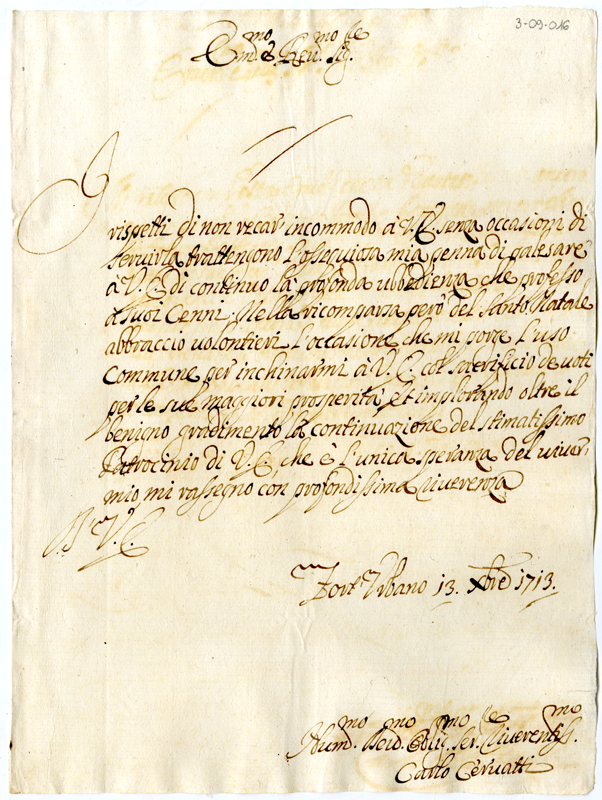 3-09-016
Em.mo e Reu.mo Sig.re
I
rispetti di non recar incommodo à V.E. senza occasioni di
seruirla trattengono l'ossequiosa mia penna di palesare
à V.E. di continuo la profonda ubbedienza che professo
a suoi Cenni. Nella ricomparsa però del Santo Natale
abbraccio uolontieri l'occasione che mi porge l'uso
commune per inchinarmi à V.E. col sacrificio de uoti
per le sue maggiori prosperità, et implorando oltre il
benigno gradimento la continuazione del stimatissimo
Patrocinio di V.E. che è l'unica speranza del uiuer
mio mi rassegno con profondissima riuerenza
D. V.E.
Fort' Vrbano 13. Xbre 1713.
Hum.mo Deuo.mo Oblig.mo Ser.re Riuerentis.mo
Carlo Ceruatti